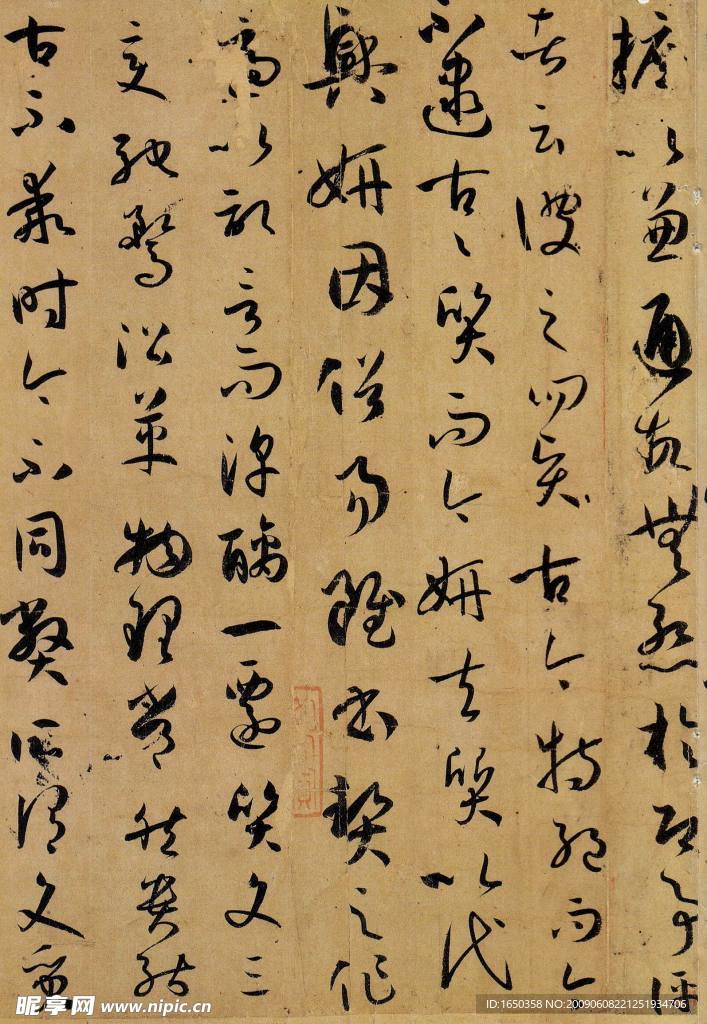 擬以兼通故無慙於即事評
者云彼之四賢古今特絕而今
不逮古古質而今妍夫質以代
興妍因俗易雖書契之作
適以記言而淳醨一遷質文三
變馳騖沿革物理常然貴能
古不乖時今不同弊所謂文質
昵享网 www.nipic.cn
ID:1650358 NO:20090608221251934706